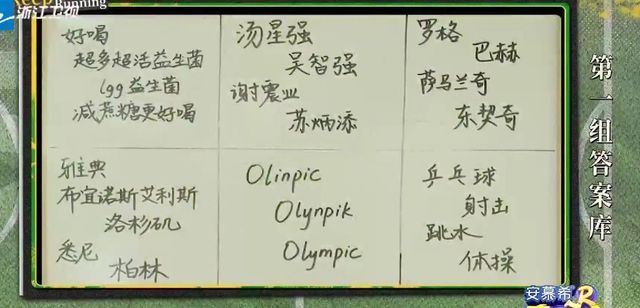 Keep Running
浙江卫视
好喝
超多超活益生菌
lgg益生菌
减蔗糖更好喝
汤星强
吴智强
谢震业
苏炳添
罗格
巴赫
萨马兰奇
东契奇
雅典
布宜诺斯艾利斯
洛杉矶
悉尼
柏林
Olinpic
Olynpik
Olympic
乒乓球
射击
跳水
体操
第一组答案库
安慕希